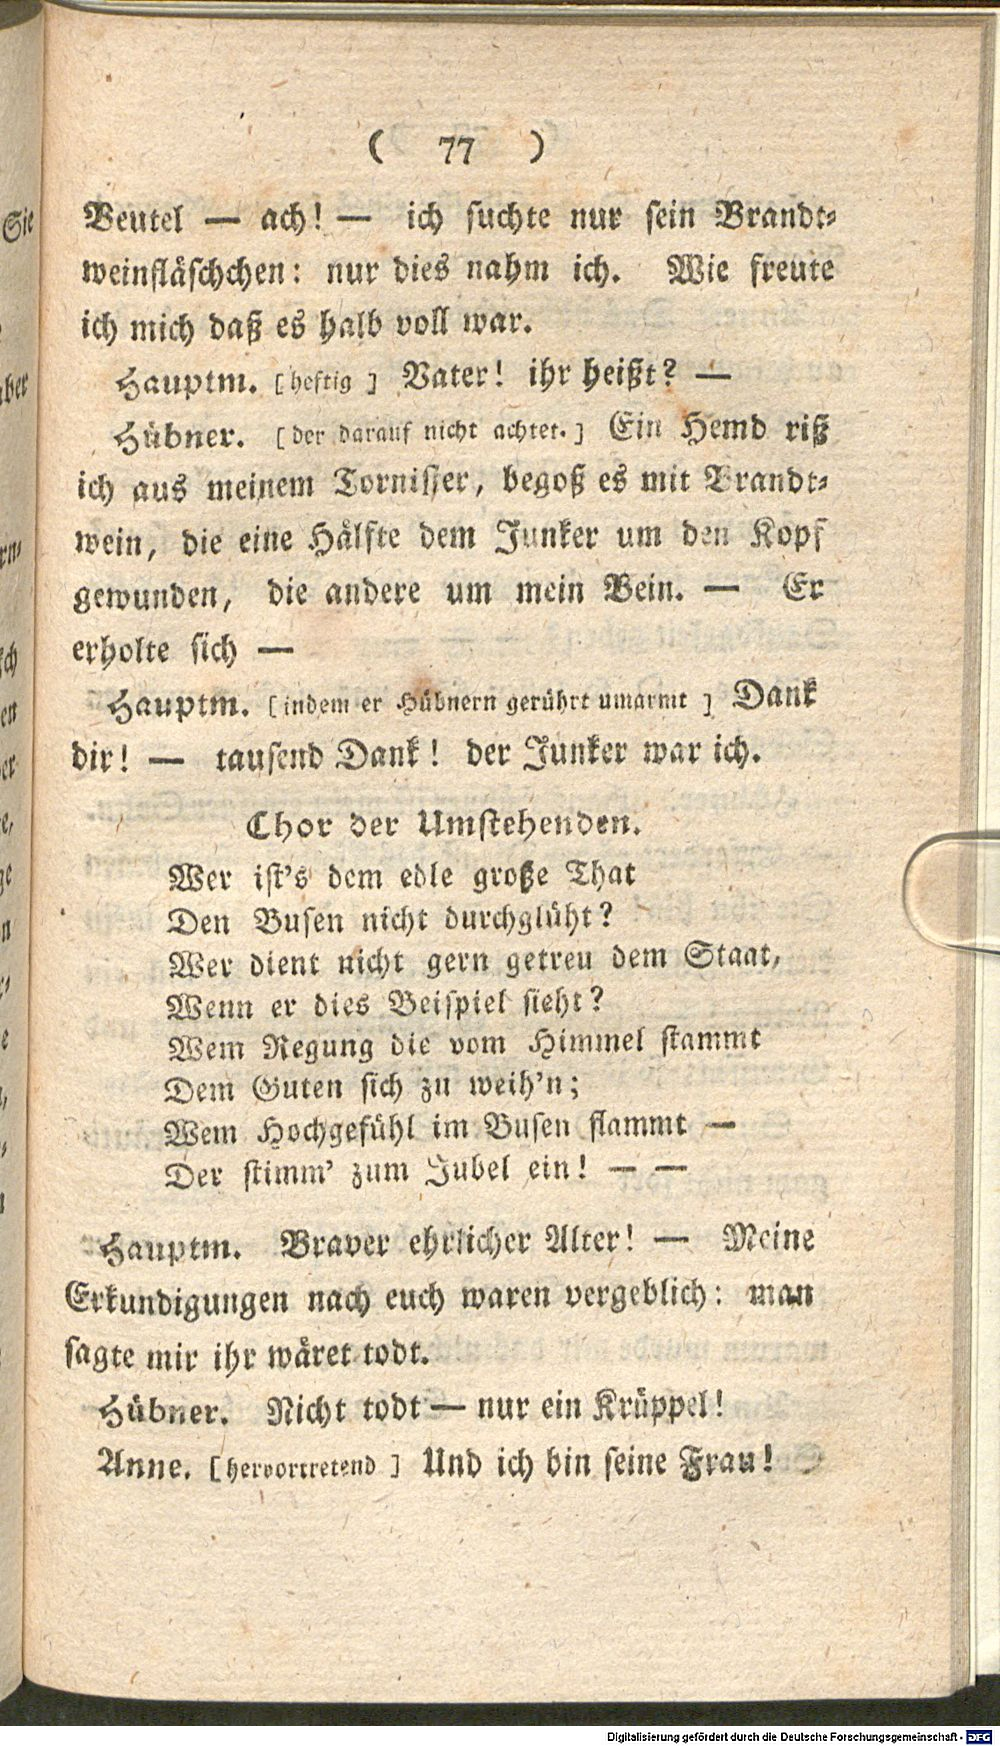 ( 77 )
Beutel — ach! — ich suchte nur sein Brandt-
weinfläschchen: nur dies nahm ich. Wie freute
ich mich daß es halb voll war.
Hauptm. [heftig] Vater! ihr heißt? —
Hübner. [der darauf nicht achtet.] Ein Hemd riß
ich aus meinem Tornister, begoß es mit Brandt-
wein, die eine Hälfte dem Junker um den Kopf
gewunden, die andere um mein Bein. — Er
erholte sich —
Hauptm. [indem er Hübnern gerührt umarmt] Dank
dir! — tausend Dank! der Junker war ich.
Chor der Umstehenden.
Wer ist's dem edle große That
Den Busen nicht durchglüht?
Wer dient nicht gern getreu dem Staat,
Wenn er dies Beispiel sieht?
Wem Regung die vom Himmel stammt
Dem Guten sich zu weih'n;
Wem Hochgefühl im Busen flammt —
Der stimm' zum Jubel ein! — —
Hauptm. Braver ehrlicher Alter! — Meine
Erkundigungen nach euch waren vergeblich: man
sagte mir ihr wäret todt.
Hübner. Nicht todt — nur ein Krüppel!
Anne. [hervortretend] Und ich bin seine Frau!
Sie
Digitalisierung gefördert durch die Deutsche Forschungsgemeinschaft - DFG